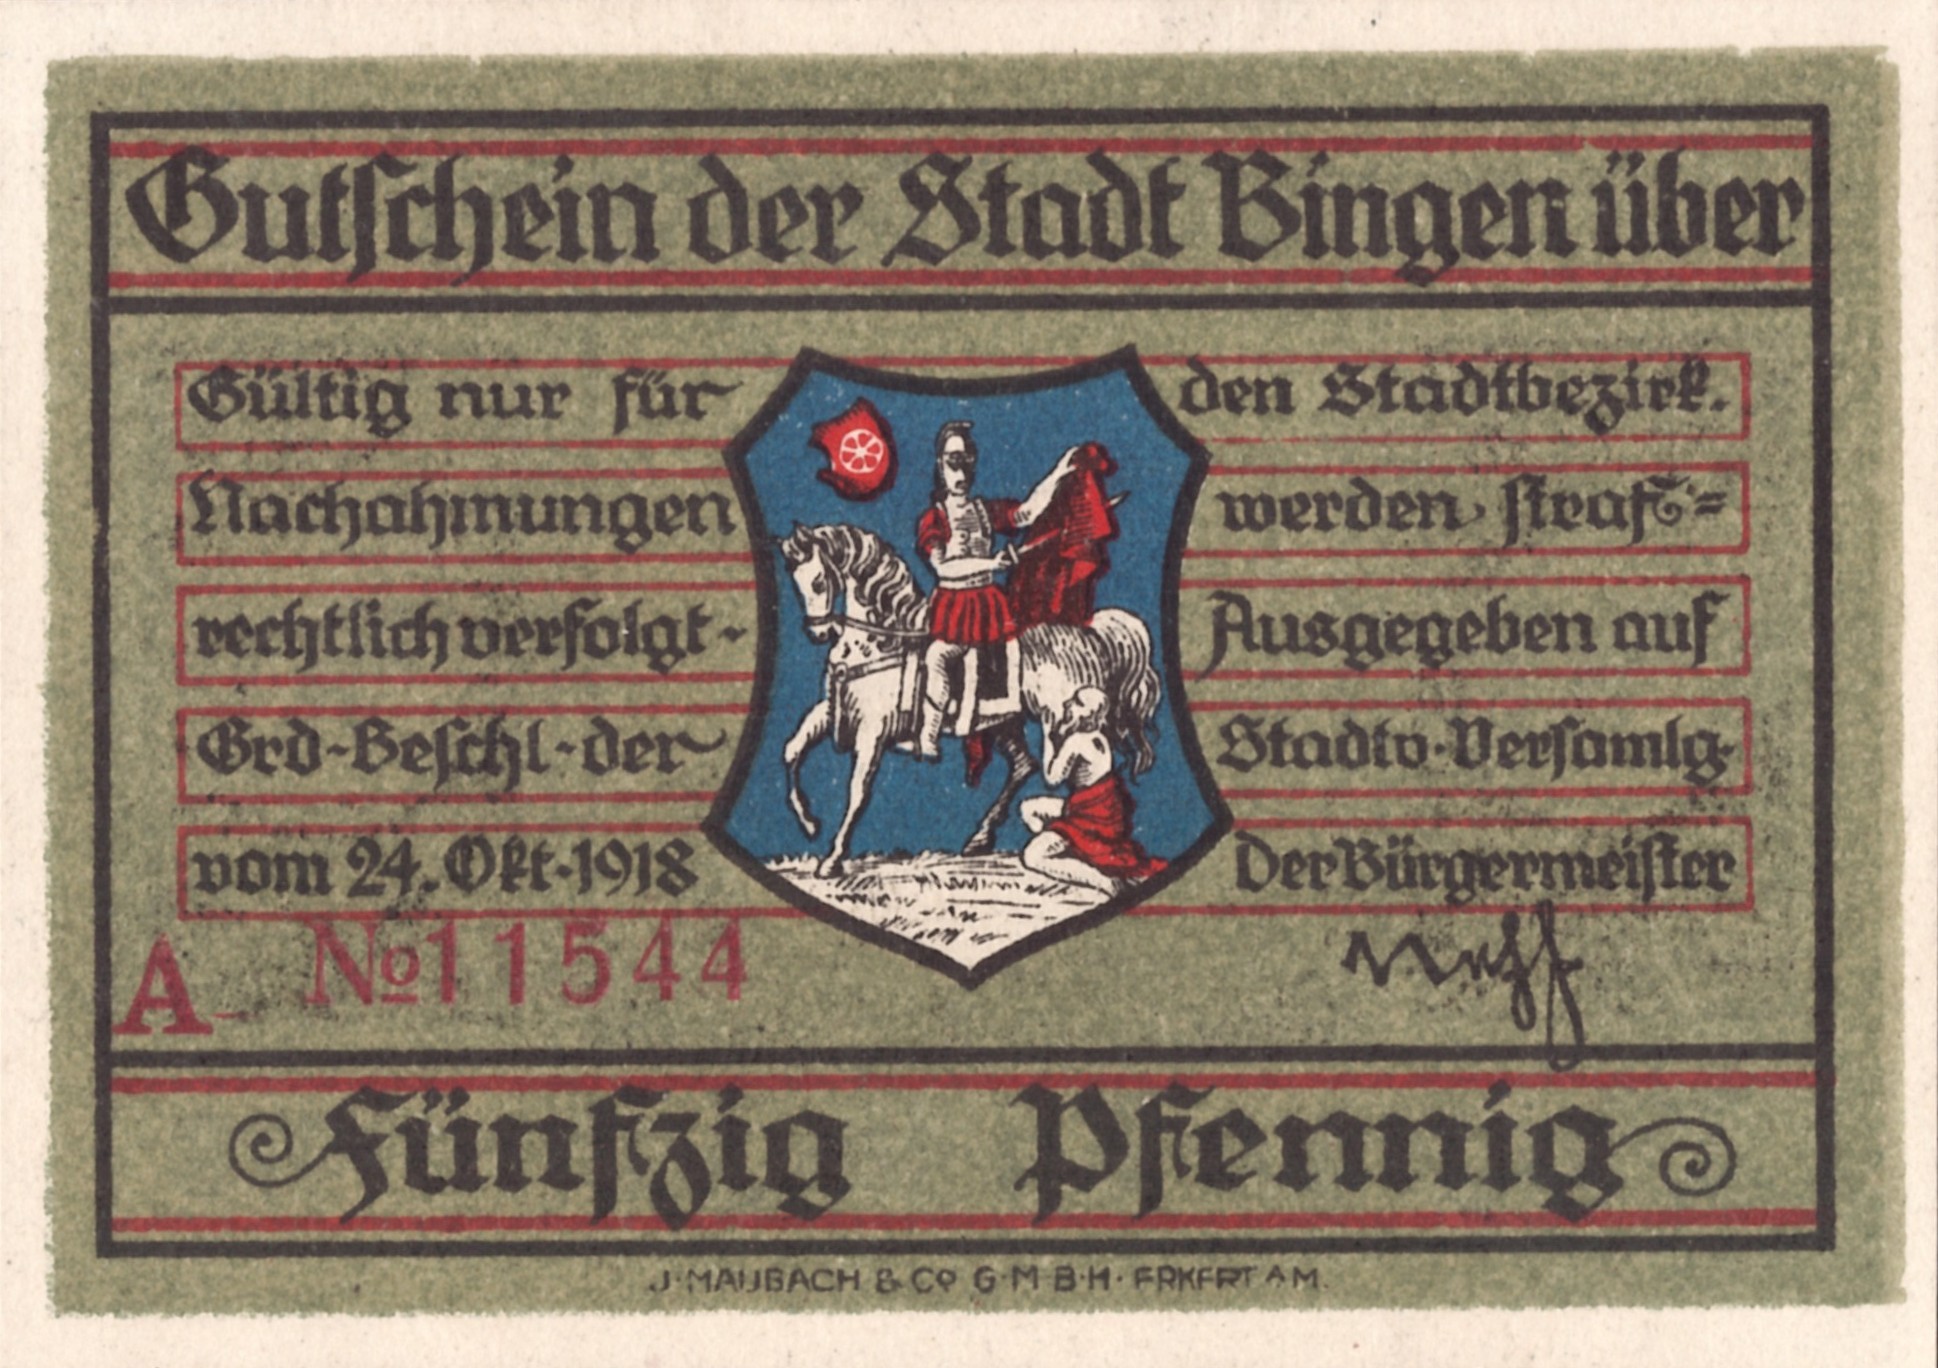 Gutschein der Stadt Bingen über
Gültig nur für den Stadtbezirk.
Nachahmungen werden straf-
rechtlich verfolgt - Ausgegeben auf
Grd-Beschl-der Stadtv. Versamlg.
vom 24. Okt. 1918 Der Bürgermeister
A № 11544 Neff
Fünfzig Pfennig
J. MAUBACH & Co G. M. B. H. FRKFRT A M.